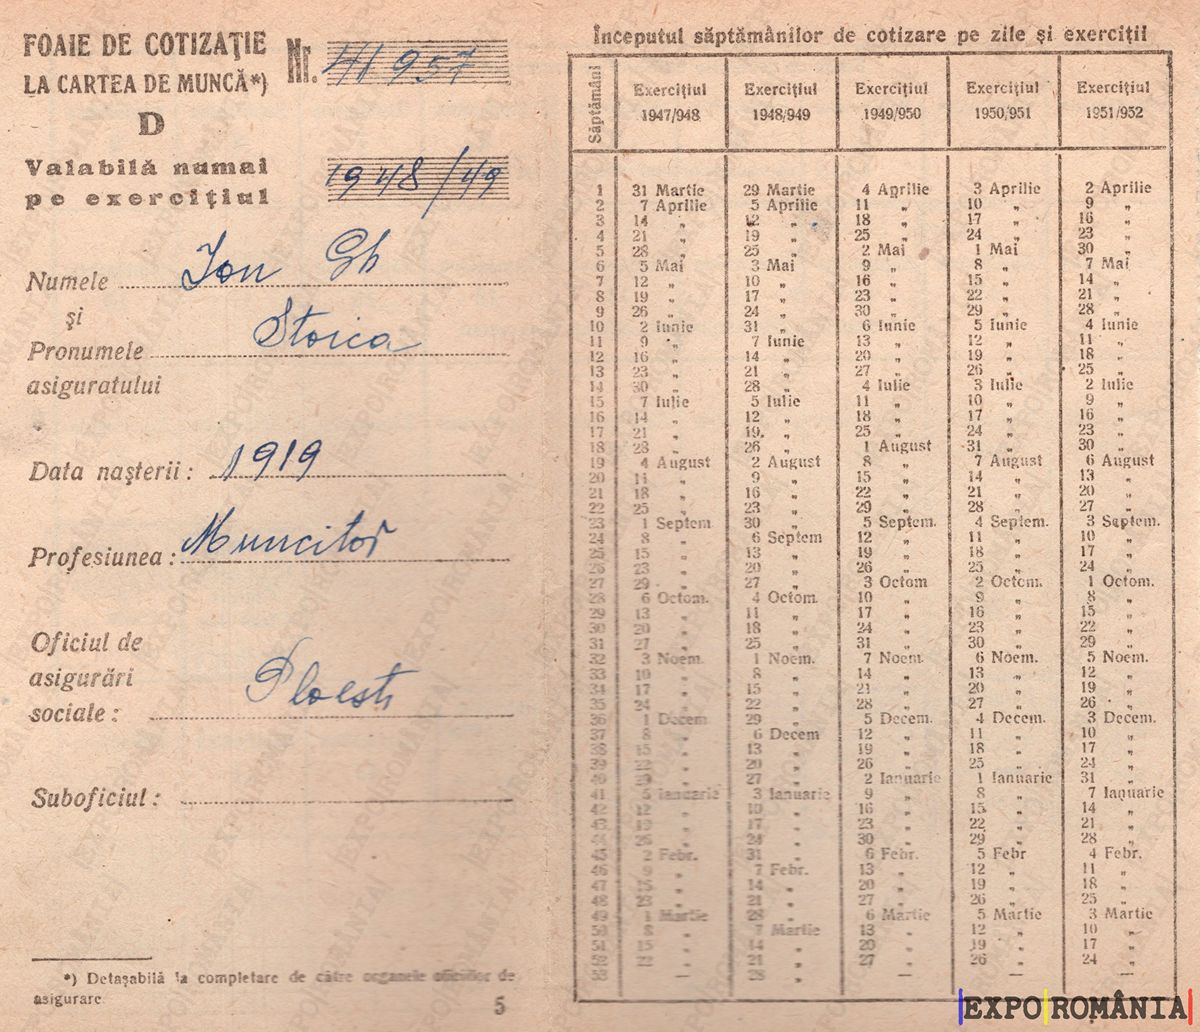 FOAIE DE COTIZAŢIE
LA CARTEA DE MUNCĂ*)
Nr. 41957
D
Valabilă numai
pe exerciţiul 1948/49
Numele Ion Gh
şi
Pronumele Stoica
asiguratului
Data naşterii: 1919
Profesiunea: Muncitor
Oficiul de
asigurări
sociale: Ploesti
Suboficiul:
*) Detaşabilă la completare de către organele oficiilor de
asigurare
5
Începutul săptămânilor de cotizare pe zile şi exerciţii
Săptămâni Exerciţiul Exerciţiul Exerciţiul Exerciţiul Exerciţiul
1947/948 1948/949 1949/950 1950/951 1951/952
1 31 Martie 29 Martie 4 Aprilie 3 Aprilie 2 Aprilie
2 7 Aprilie 5 Aprilie 11 „ 10 „ 9 „
3 14 „ 12 „ 18 „ 17 „ 16 „
4 21 „ 19 „ 25 „ 24 „ 23 „
5 28 „ 25 „ 2 Mai 1 Mai 30 „
6 5 Mai 3 Mai 9 „ 8 „ 7 Mai
7 12 „ 10 „ 16 „ 15 „ 14 „
8 19 „ 17 „ 23 „ 22 „ 21 „
9 26 „ 24 „ 30 „ 29 „ 28 „
10 2 Iunie 31 „ 6 Iunie 5 Iunie 4 Iunie
11 9 „ 7 Iunie 13 „ 12 „ 11 „
12 16 „ 14 „ 20 „ 19 „ 18 „
13 23 „ 21 „ 27 „ 26 „ 25 „
14 30 „ 28 „ 4 Iulie 3 Iulie 2 Iulie
15 7 Iulie 5 Iulie 11 „ 10 „ 9 „
16 14 „ 12 „ 18 „ 17 „ 16 „
17 21 „ 19. „ 25 „ 24 „ 23 „
18 28 „ 26 „ 1 August 31 „ 30 „
19 4 August 2 August 8 „ 7 August 6 August
20 11 „ 9 „ 15 „ 14 „ 13 „
21 18 „ 16 „ 22 „ 21 „ 20 „
22 25 „ 23 „ 29 „ 28 „ 27 „
23 1 Septem 30 „ 5 Septem. 4 Septem. 3 Septem.
24 8 „ 6 Septem 12 „ 11 „ 10 „
25 15 „ 13 „ 19 „ 18 „ 17 „
26 23 „ 20 „ 26 „ 25 „ 24 „
27 29 „ 27 „ 3 Octom 2 Octom. 1 Octom.
28 6 Octom. 4 Octom. 10 „ 9 „ 8 „
29 13 „ 11 „ 17 „ 16 „ 15 „
30 20 „ 18 „ 24 „ 23 „ 22 „
31 27 „ 25 „ 31 „ 30 „ 29 „
32 3 Noem. 1 Noem. 7 Noem. 6 Noem. 5 Noem.
33 10 „ 8 „ 14 „ 13 „ 12 „
34 17 „ 15 „ 21 „ 20 „ 19 „
35 24 „ 22 „ 28 „ 27 „ 26 „
36 1 Decem 29 „ 5 Decem. 4 Decem. 3 Decem.
37 8 „ 6 Decem 12 „ 11 „ 10 „
38 15 „ 13 „ 19 „ 18 „ 17 „
39 22 „ 20 „ 26 „ 25 „ 24 „
40 29 „ 27 „ 2 Ianuarie 1 Ianuarie 31 „
41 5 Ianuarie 3 Ianuarie 9 „ 8 „ 7 Ianuarie
42 12 „ 10 „ 16 „ 15 „ 14 „
43 19 „ 17 „ 23 „ 22 „ 21 „
44 26 „ 24 „ 30 „ 29 „ 28 „
45 2 Febr. 31 „ 6 Febr. 5 Febr 4 Febr.
46 9 „ 7 Febr. 13 „ 12 „ 11 „
47 „ 14 „ 20 „ 19 „ 18 „
48 23 „ 21 „ 27 „ 26 „ 25 „
49 1 Martie 28 „ 6 Martie 5 Martie 3 Martie
50 8 „ 7 Martie 13 „ 12 „ 10 „
51 15 „ 14 „ 20 „ 19 „ 17 „
52 22 „ 21 „ 27 „ 26 „ 24 „
53 — 28 „ — — —
EXPO ROMÂNIA